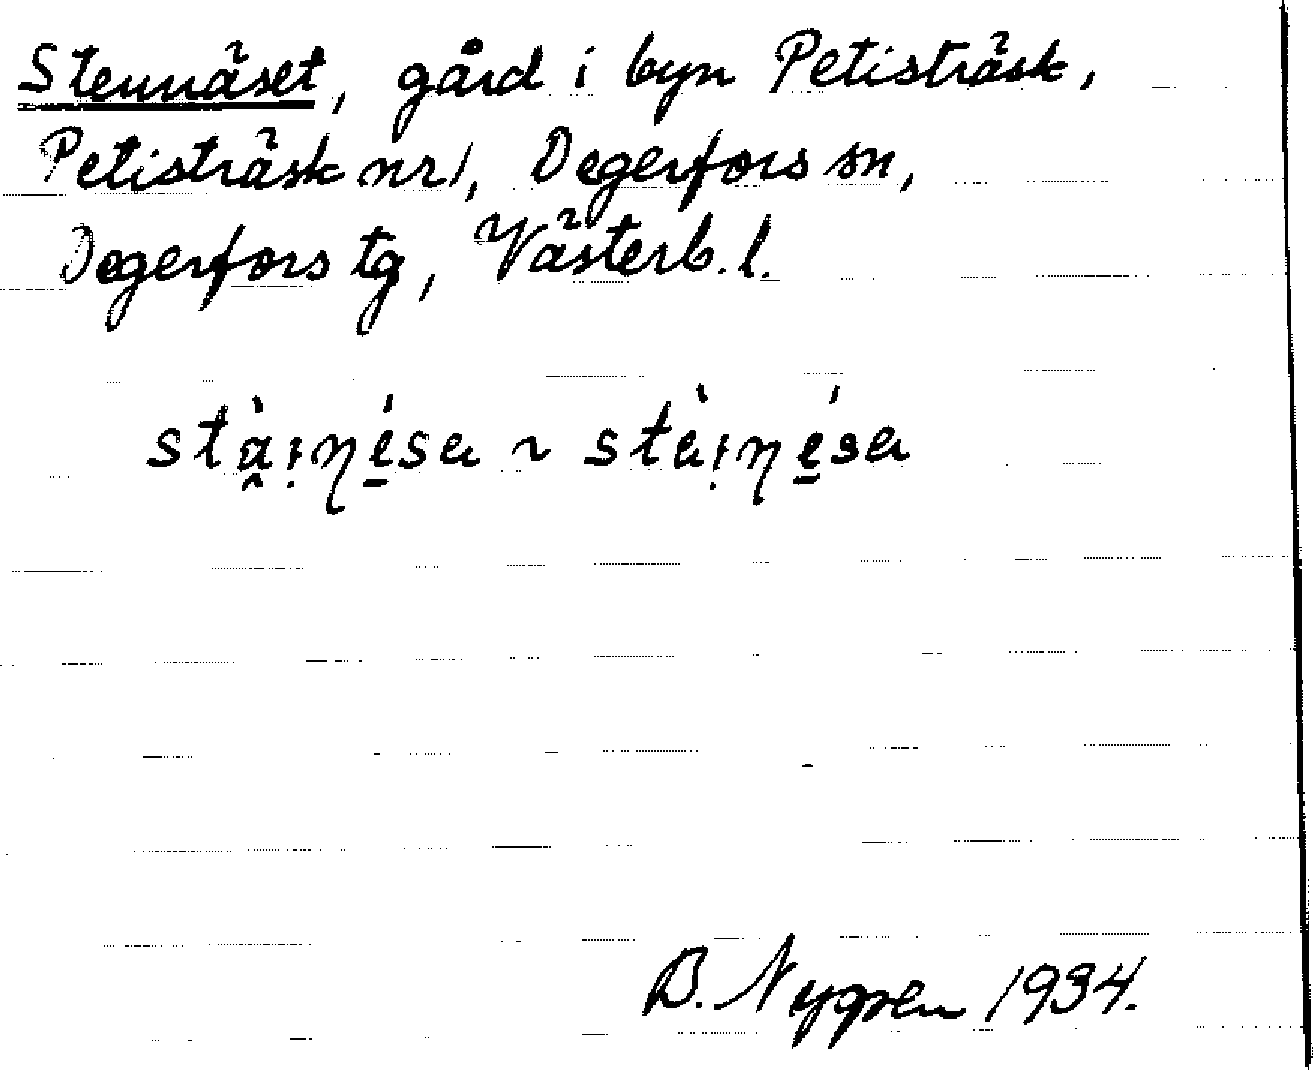 Stennäset, gård i byn Petisträsk,
Petisträsk nr 1, Degerfors sn,
Degerfors tg, Västerb. l.
B. Nygren 1934.